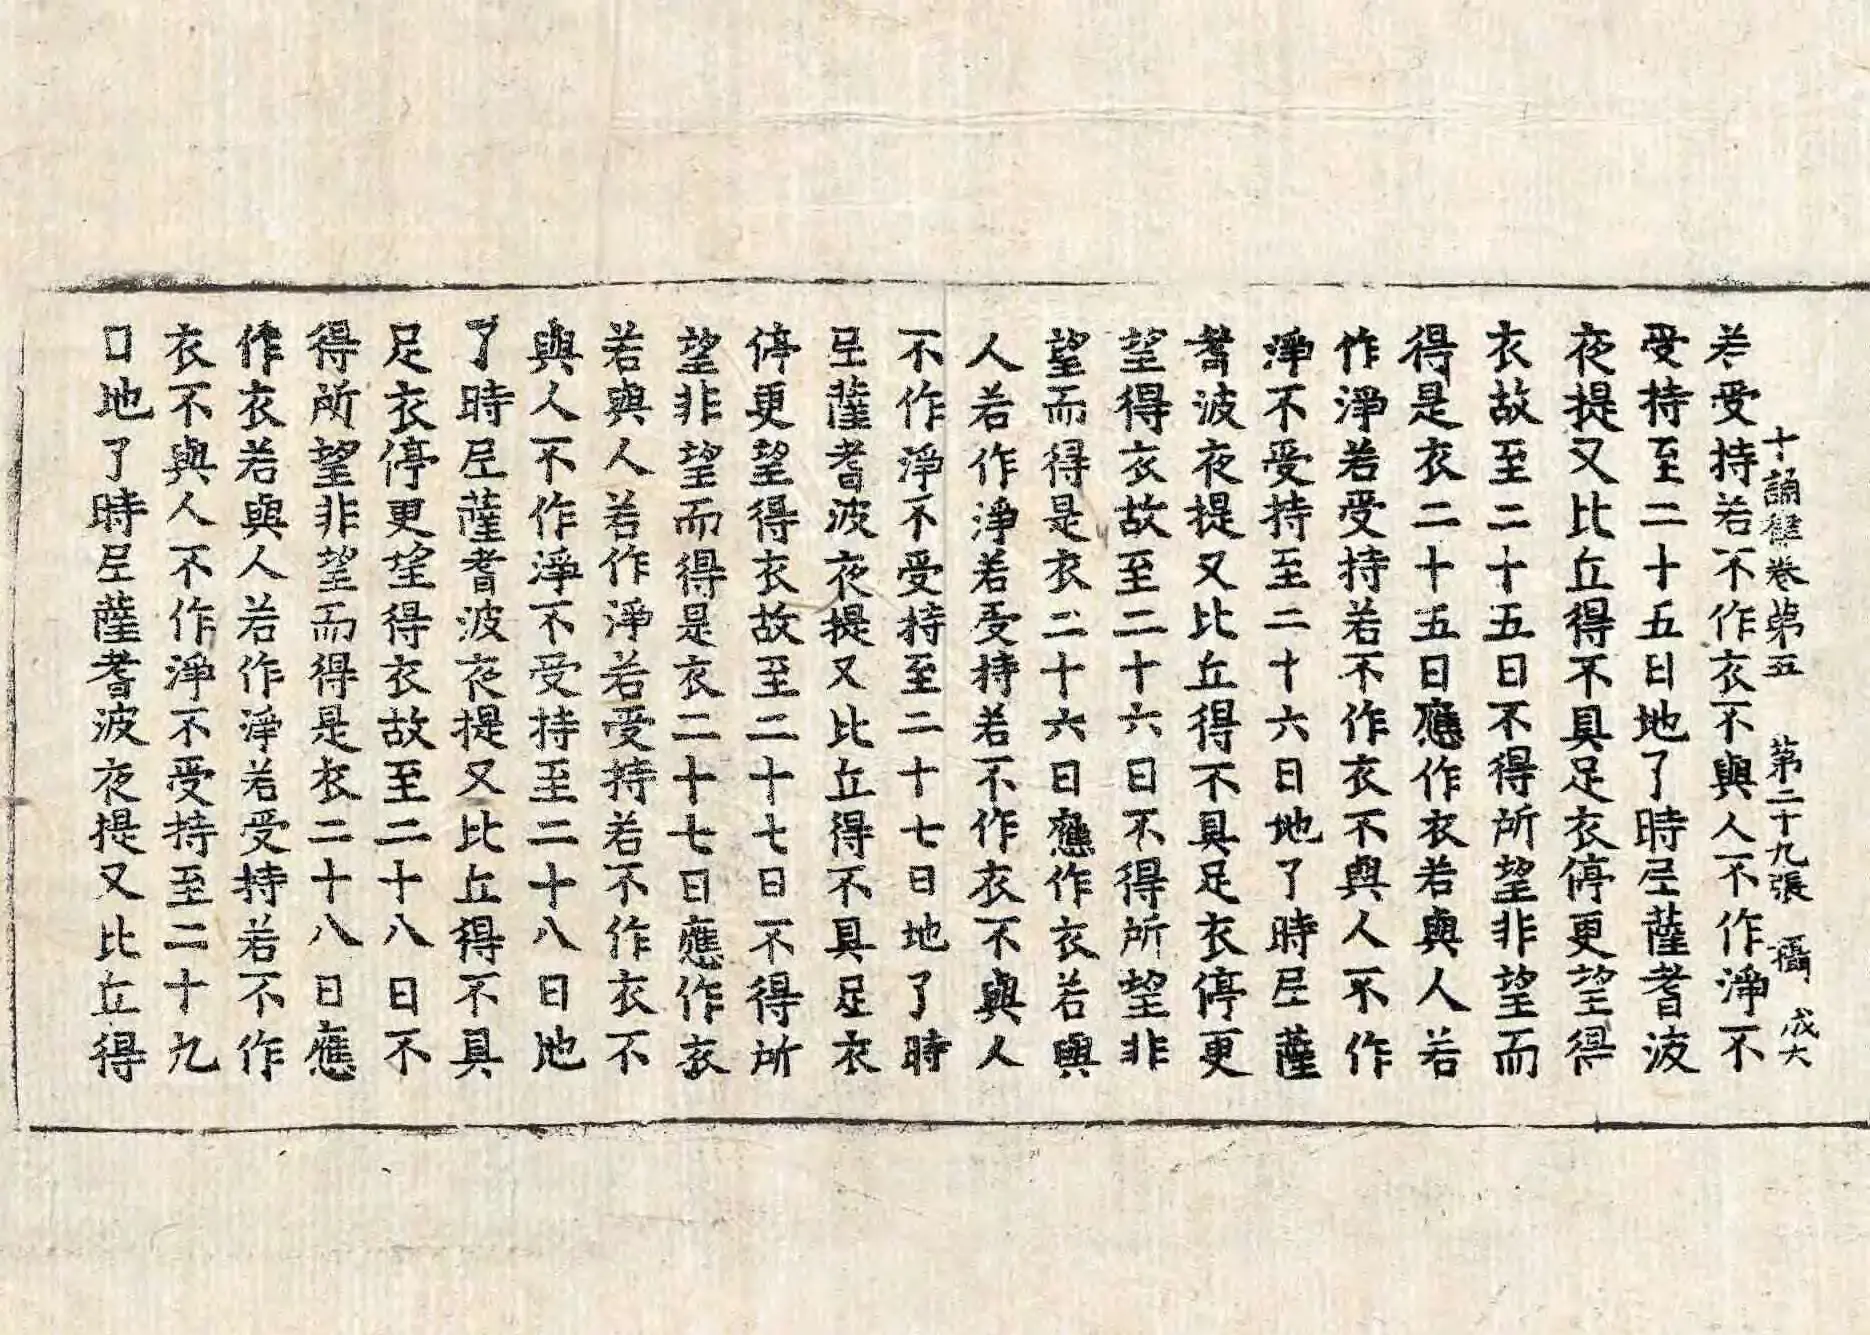 十誦律卷第五 第二十九張 攝
若受持若不作衣不與人不作淨不
受持至二十五日地了時尼薩耆波
夜提又比丘得不具足衣停更望得
衣故至二十五日不得所望非望而
得是衣二十五日應作衣若與人若
作淨若受持若不作衣不與人不作
淨不受持至二十六日地了時尼薩
耆波夜提又比丘得不具足衣停更
望得衣故至二十六日不得所望非
望而得是衣二十六日應作衣若與
人若作淨若受持若不作衣不與人
不作淨不受持至二十七日地了時
尼薩耆波夜提又比丘得不具足衣
停更望得衣故至二十七日不得所
望非望而得是衣二十七日應作衣
若與人若作淨若受持若不作衣不
與人不作淨不受持至二十八日地
了時尼薩耆波夜提又比丘得不具
足衣停更望得衣故至二十八日不
得所望非望而得是衣二十八日應
作衣若與人若作淨若受持若不作
衣不與人不作淨不受持至二十九
日地了時尼薩耆波夜提又比丘得